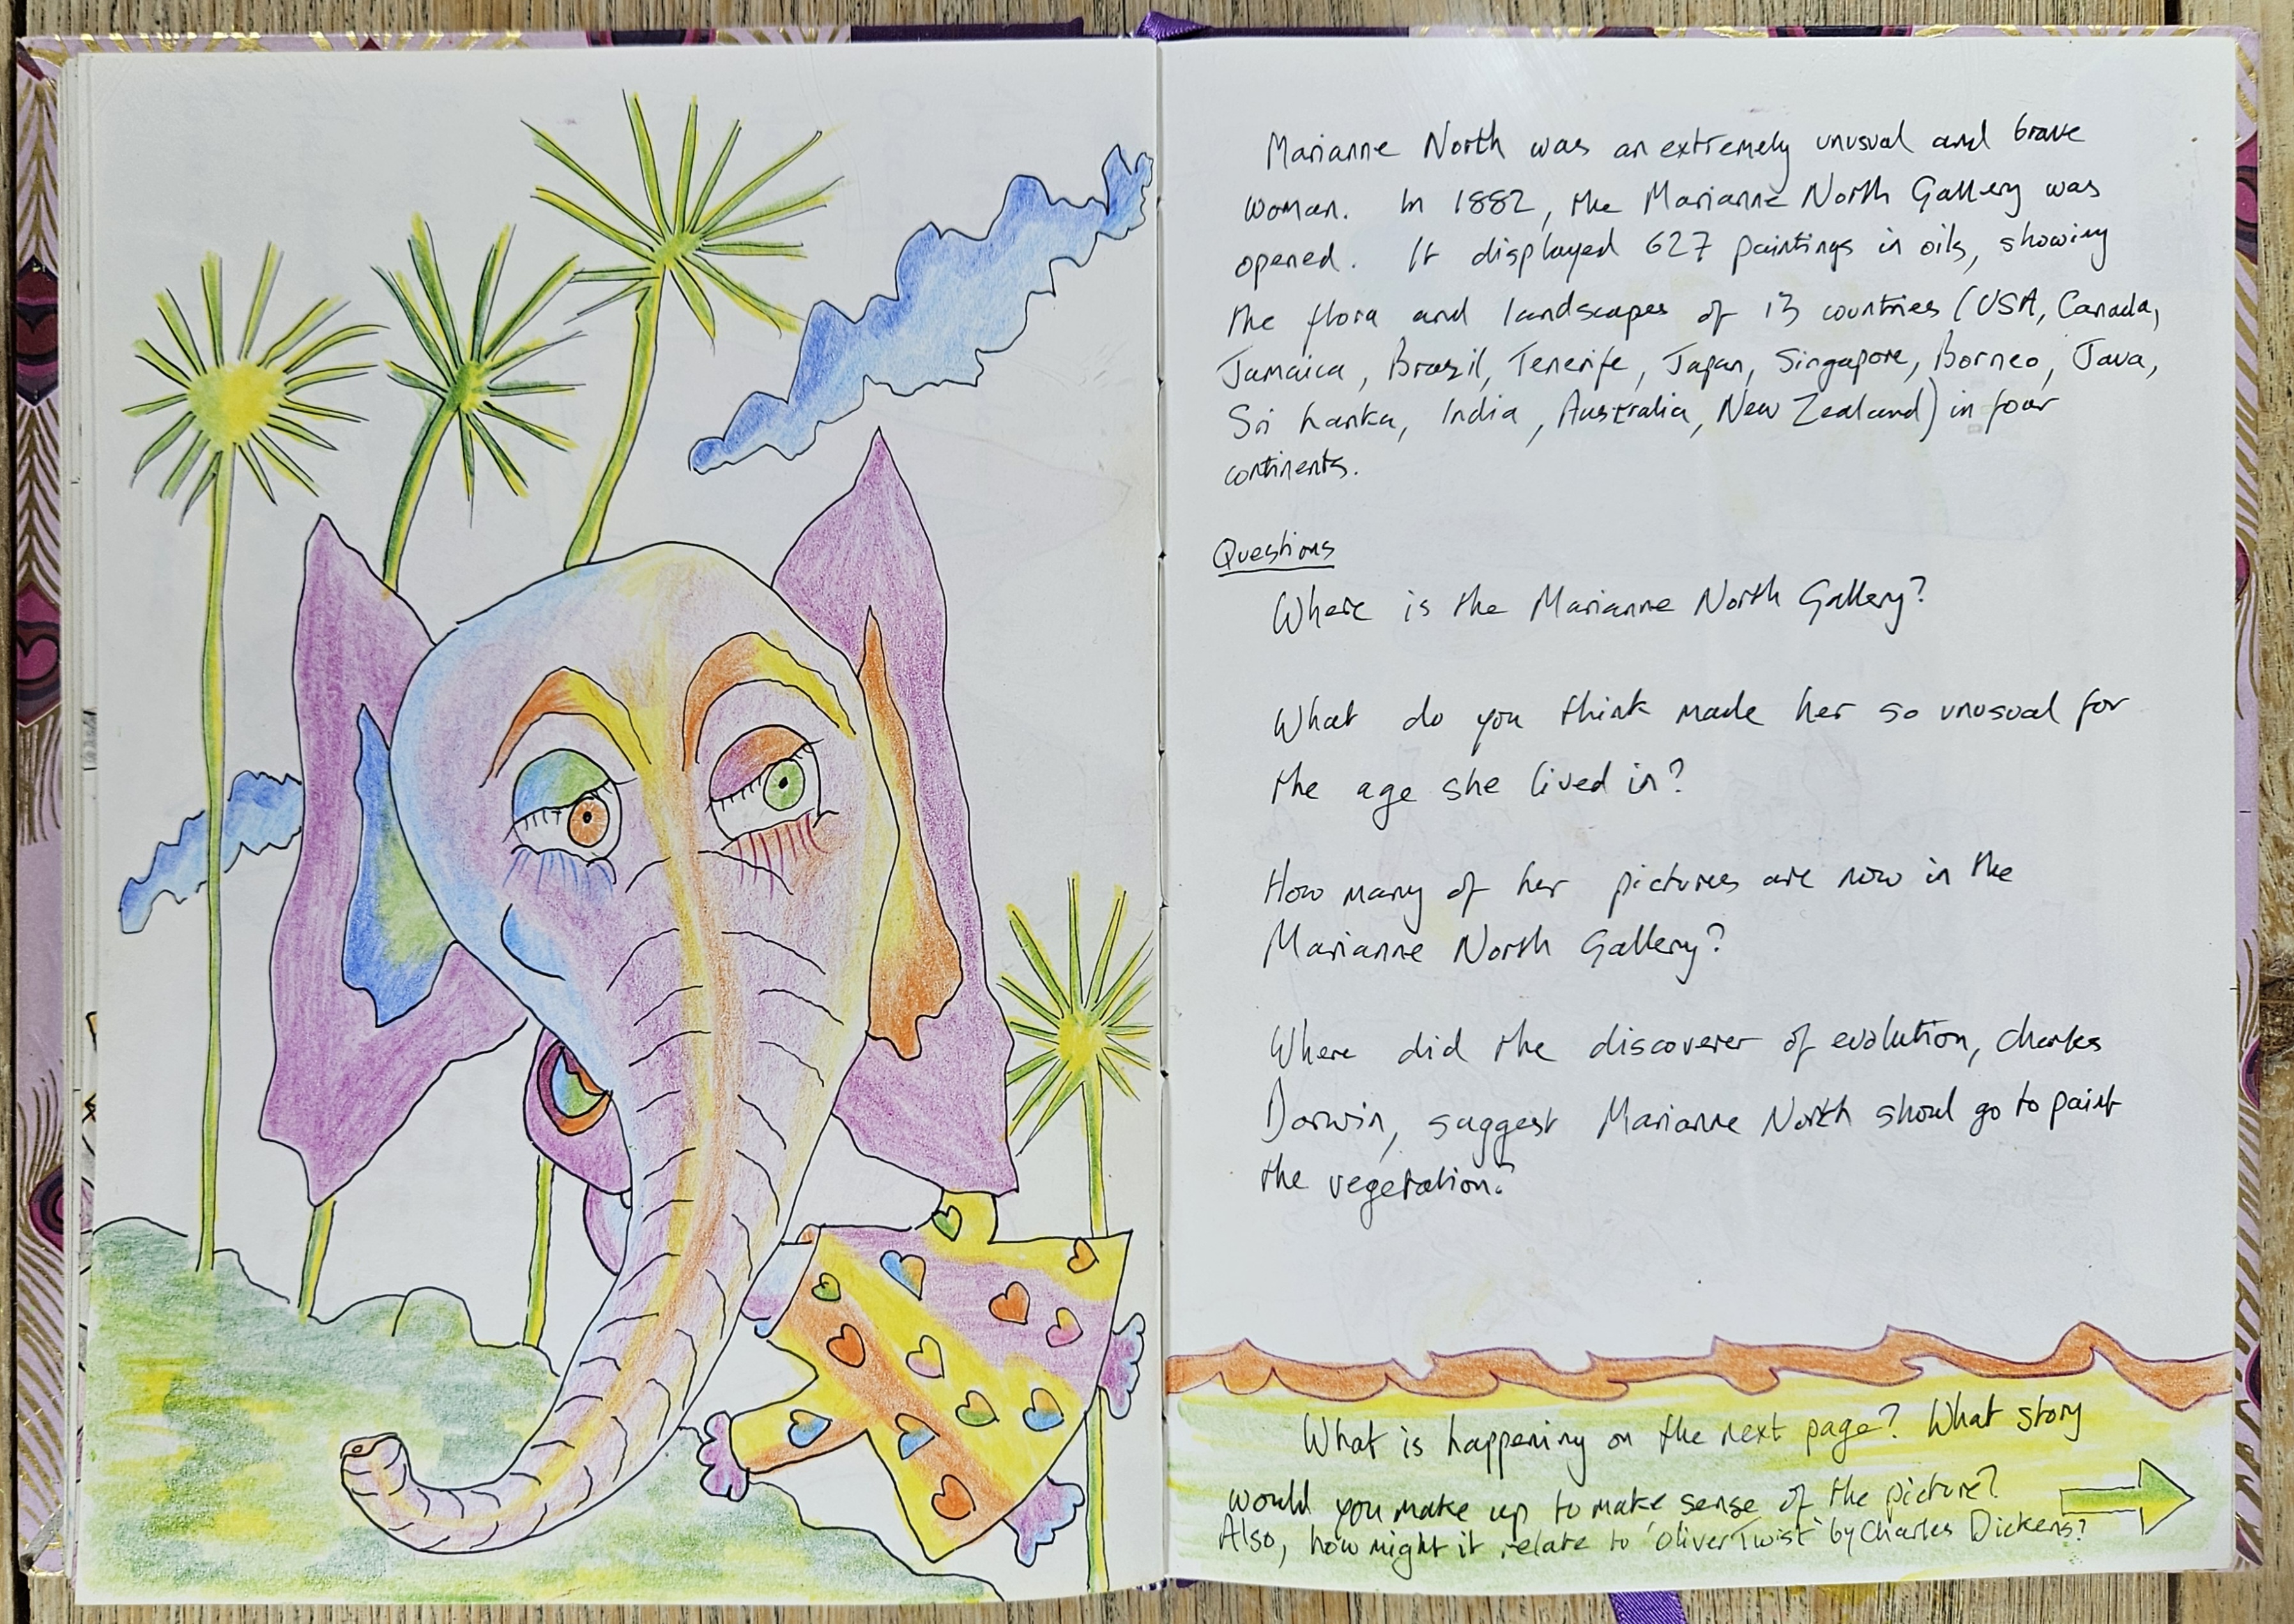 Marianne North was an extremely unusual and brave
woman. In 1882, the Marianne North Gallery was
opened. It displayed 627 paintings in oils, showing
the flora and landscapes of 13 countries (USA, Canada,
Jamaica, Brazil, Tenerife, Japan, Singapore, Borneo, Java,
Sri Lanka, India, Australia, New Zealand) in four
continents.
Questions
Where is the Marianne North Gallery?
What do you think made her so unusual for
the age she lived in?
How many of her pictures are now in the
Marianne North Gallery?
Where did the discoverer of evolution, Charles
Darwin, suggest Marianne North shoul go to paint
the vegetation?
What is happening on the next page? What story
would you make up to make sense of the picture?
Also, how might it relate to 'Oliver Twist' by Charles Dickens?